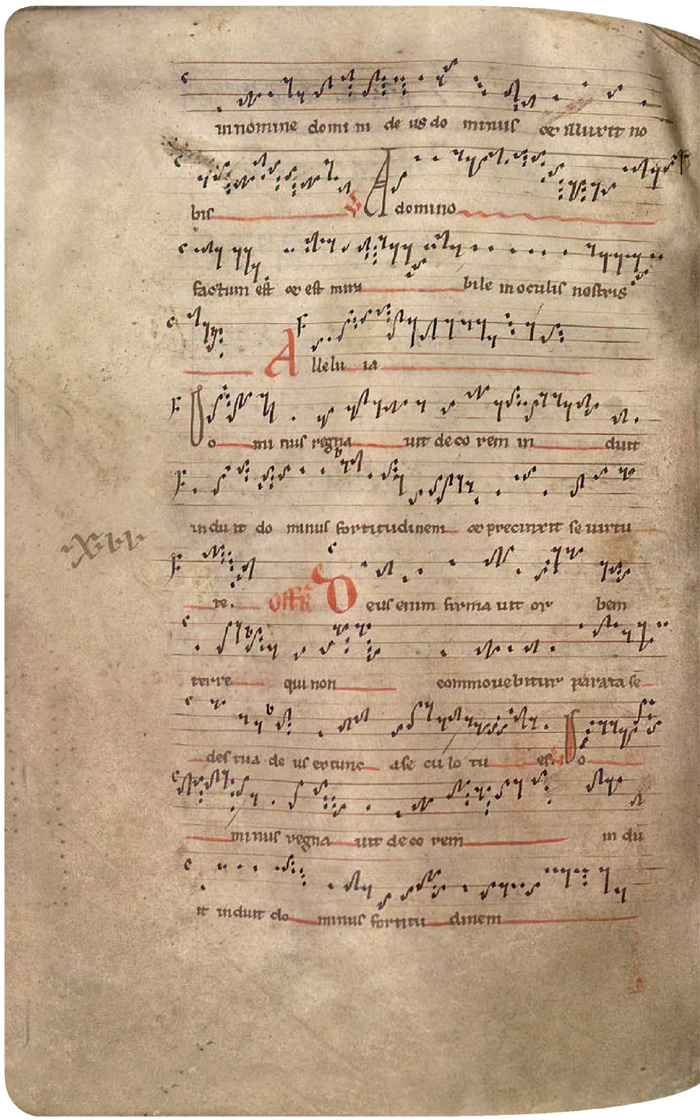 in nomine domi ni de us do minus et illuxit no
bis ℣ A domino
factum est et est mira bile in oculis nostris
A llelu ia
Do mi nus regna uit deco rem in duit
induit do minus fortitudinem et precinxit se uirtu
te. Offr̄ Deus enim forma uit or bem
terre qui non commouebitur parata se
des tua de us ex tunc a se cu lo tu es. ℣ Do
minus regna uit de co rem in du
it induit do minus fortitu dinem